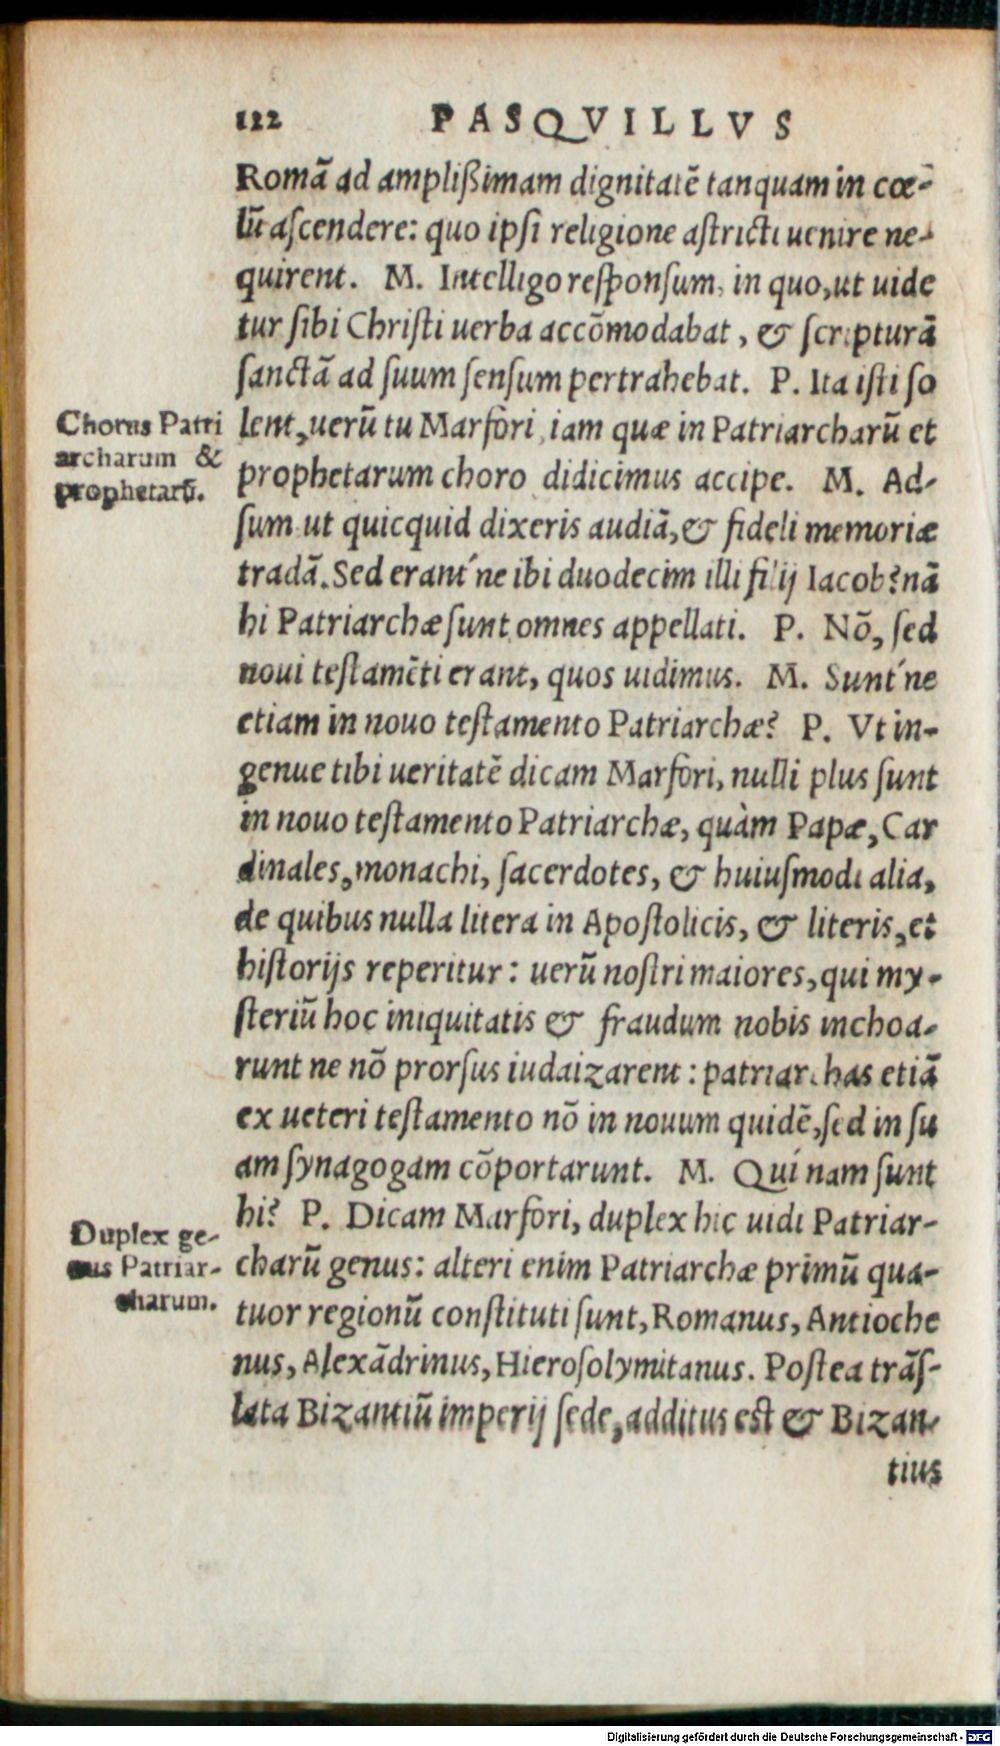 122 PASQVILLVS
Romã ad ampliſsimam dignitatẽ tanquam in cœ-
lũ aſcendere: quo ipſi religione aſtricti uenire ne-
quirent. M. Intelligo reſponſum, in quo, ut uide
tur ſibi Chriſti uerba accõmodabat, & ſcripturã
ſanctã ad ſuum ſenſum pertrahebat. P. Ita iſti ſo
Chorus Patri
archarum &
prophetarũ.
lent, uerũ tu Marfori, iam quæ in Patriarcharũ et
prophetarum choro didicimus accipe. M. Ad-
ſum ut quicquid dixeris audiã, & fideli memoriæ
tradã. Sed erant´ne ibi duodecim illi filij Iacob? nã
hi Patriarchæ ſunt omnes appellati. P. Nõ, ſed
noui teſtamẽti erant, quos uidimus. M. Sunt´ne
etiam in nouo teſtamento Patriarchæ? P. Vt in-
genue tibi ueritatẽ dicam Marfori, nulli plus ſunt
in nouo teſtamento Patriarchæ, quàm Papæ, Car
dinales, monachi, ſacerdotes, & huiuſmodi alia,
de quibus nulla litera in Apoſtolicis, & literis, et
hiſtorijs reperitur: uerũ noſtri maiores, qui my-
ſteriũ hoc iniquitatis & fraudum nobis inchoa-
runt ne nõ prorſus iudaizarent: patriarchas etiã
ex ueteri teſtamento nõ in nouum quidẽ, ſed in ſu
am ſynagogam cõportarunt. M. Quí nam ſunt
hi? P. Dicam Marfori, duplex hic uidi Patriar-
Duplex ge-
nus Patriar-
charum.
charũ genus: alteri enim Patriarchæ primũ qua-
tuor regionũ conſtituti ſunt, Romanus, Antioche
nus, Alexãdrinus, Hieroſolymitanus. Poſtea trãſ-
lata Bizantiũ imperij ſede, additus est & Bizan-
tius
Digitalisierung gefördert durch die Deutsche Forschungsgemeinschaft - DFG